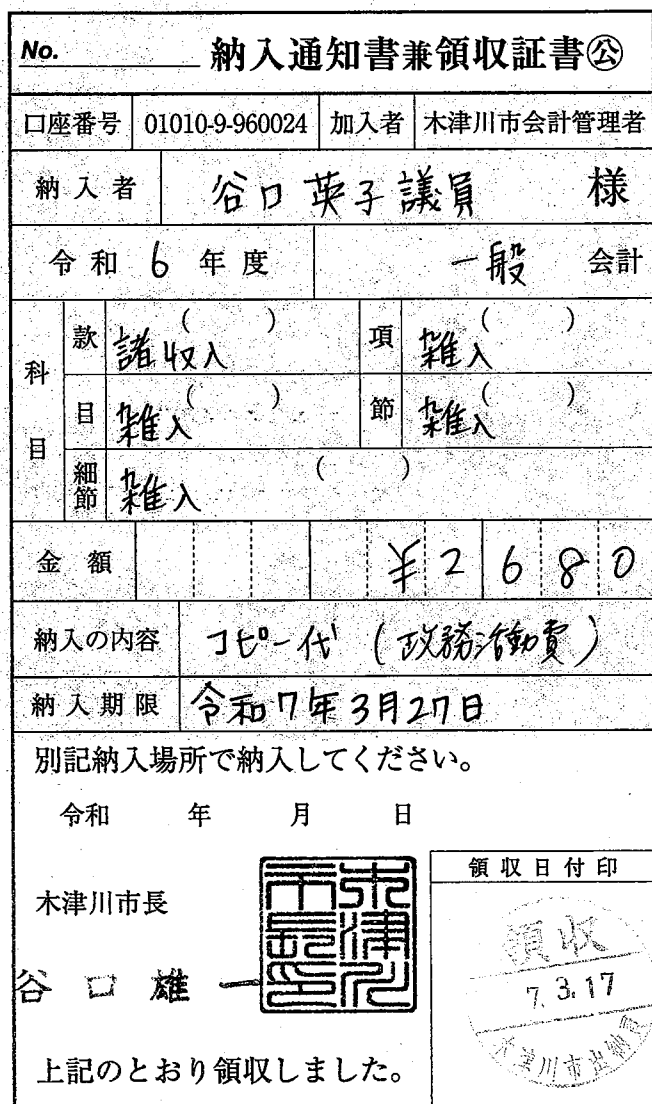 No. 納入通知書兼領収証書㊗公
口座番号 01010-9-960024 加入者 木津川市会計管理者
納入者 谷口英子議員 様
令和 6 年度 一般 会計
科目
款 ( ) 諸収入 項 ( ) 雑入
目 ( ) 雑入 節 ( ) 雑入
細節 ( ) 雑入
金額 ¥2680
納入の内容 コピー代(政務活動費)
納入期限 令和7年3月27日
別記納入場所で納入してください。
令和 年 月 日
木津川市長
木津川市長印
谷口雄一
上記のとおり領収しました。
領収日付印
領収
7.3.17
木津川市出納員